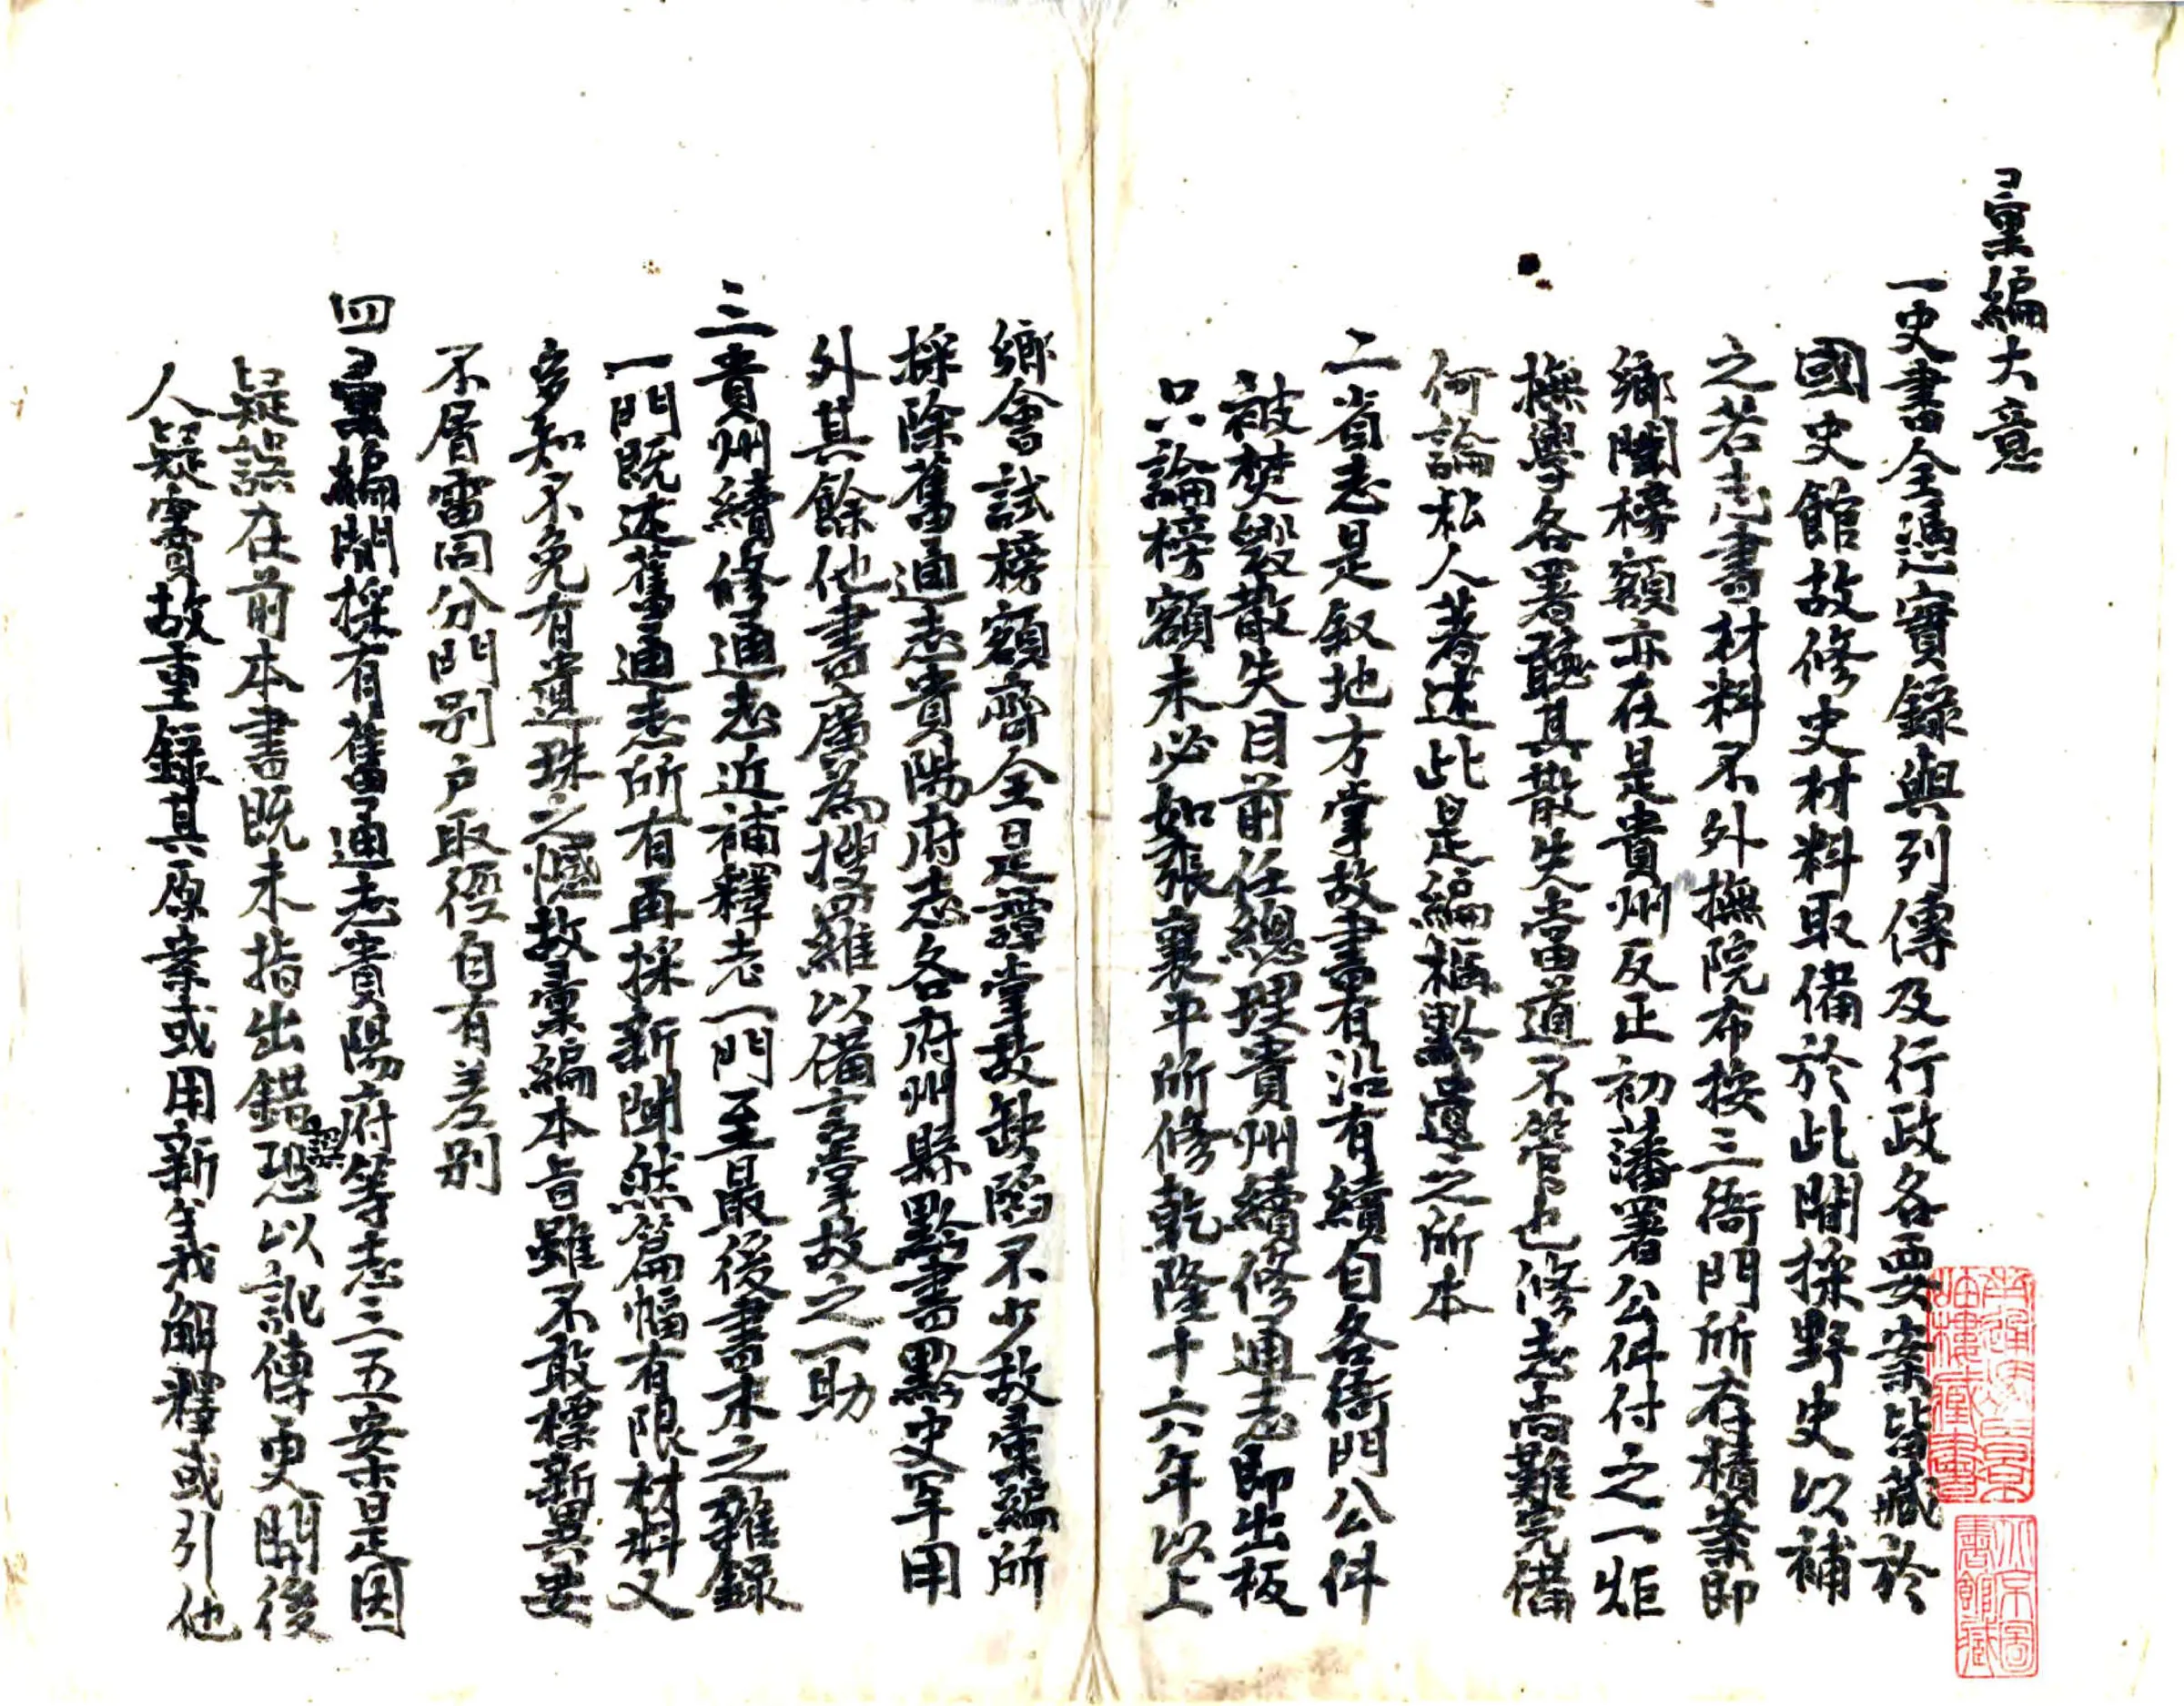 彙編大意
一史書全憑實錄與列傳及行政各要案皆藏於
國史館故修史材料取備於此間採野史以補
之若志書材料不外撫院布按三衙門所存積案即
鄉闈榜額亦在是貴州反正初藩署公件付之一炬
撫學各署聽其散失當道不管也修志尚難完備
何論私人著述此是編樞黔遺之所本
二省志是叙地方掌故書有沿有續自各衙門公件
被焚毀散失目前任總理貴州續修通志即出板
只論榜額未必如張襄平所修乾隆十六年以上
鄉會試榜額齊全是譚掌故缺陷不少故彙編所
採除舊通志貴陽府志各府州縣黔書黔史罕用
外其餘他書廣為搜羅以備言掌故之一助
三貴州續修通志近補釋老一門至最後書未之雜錄
一門既述舊通志所有再採新聞然篇幅有限材料又
多知不免有遺珠之憾故彙編本旨雖不敢標新異要
不屑雷同分門别户取徑自有差别
四彙編間採有舊通志貴陽府等志三五案是因
疑誤在前本書既未指出錯誤恐以訛傳更開後
人疑竇故重錄其原案或用新義解釋或引他